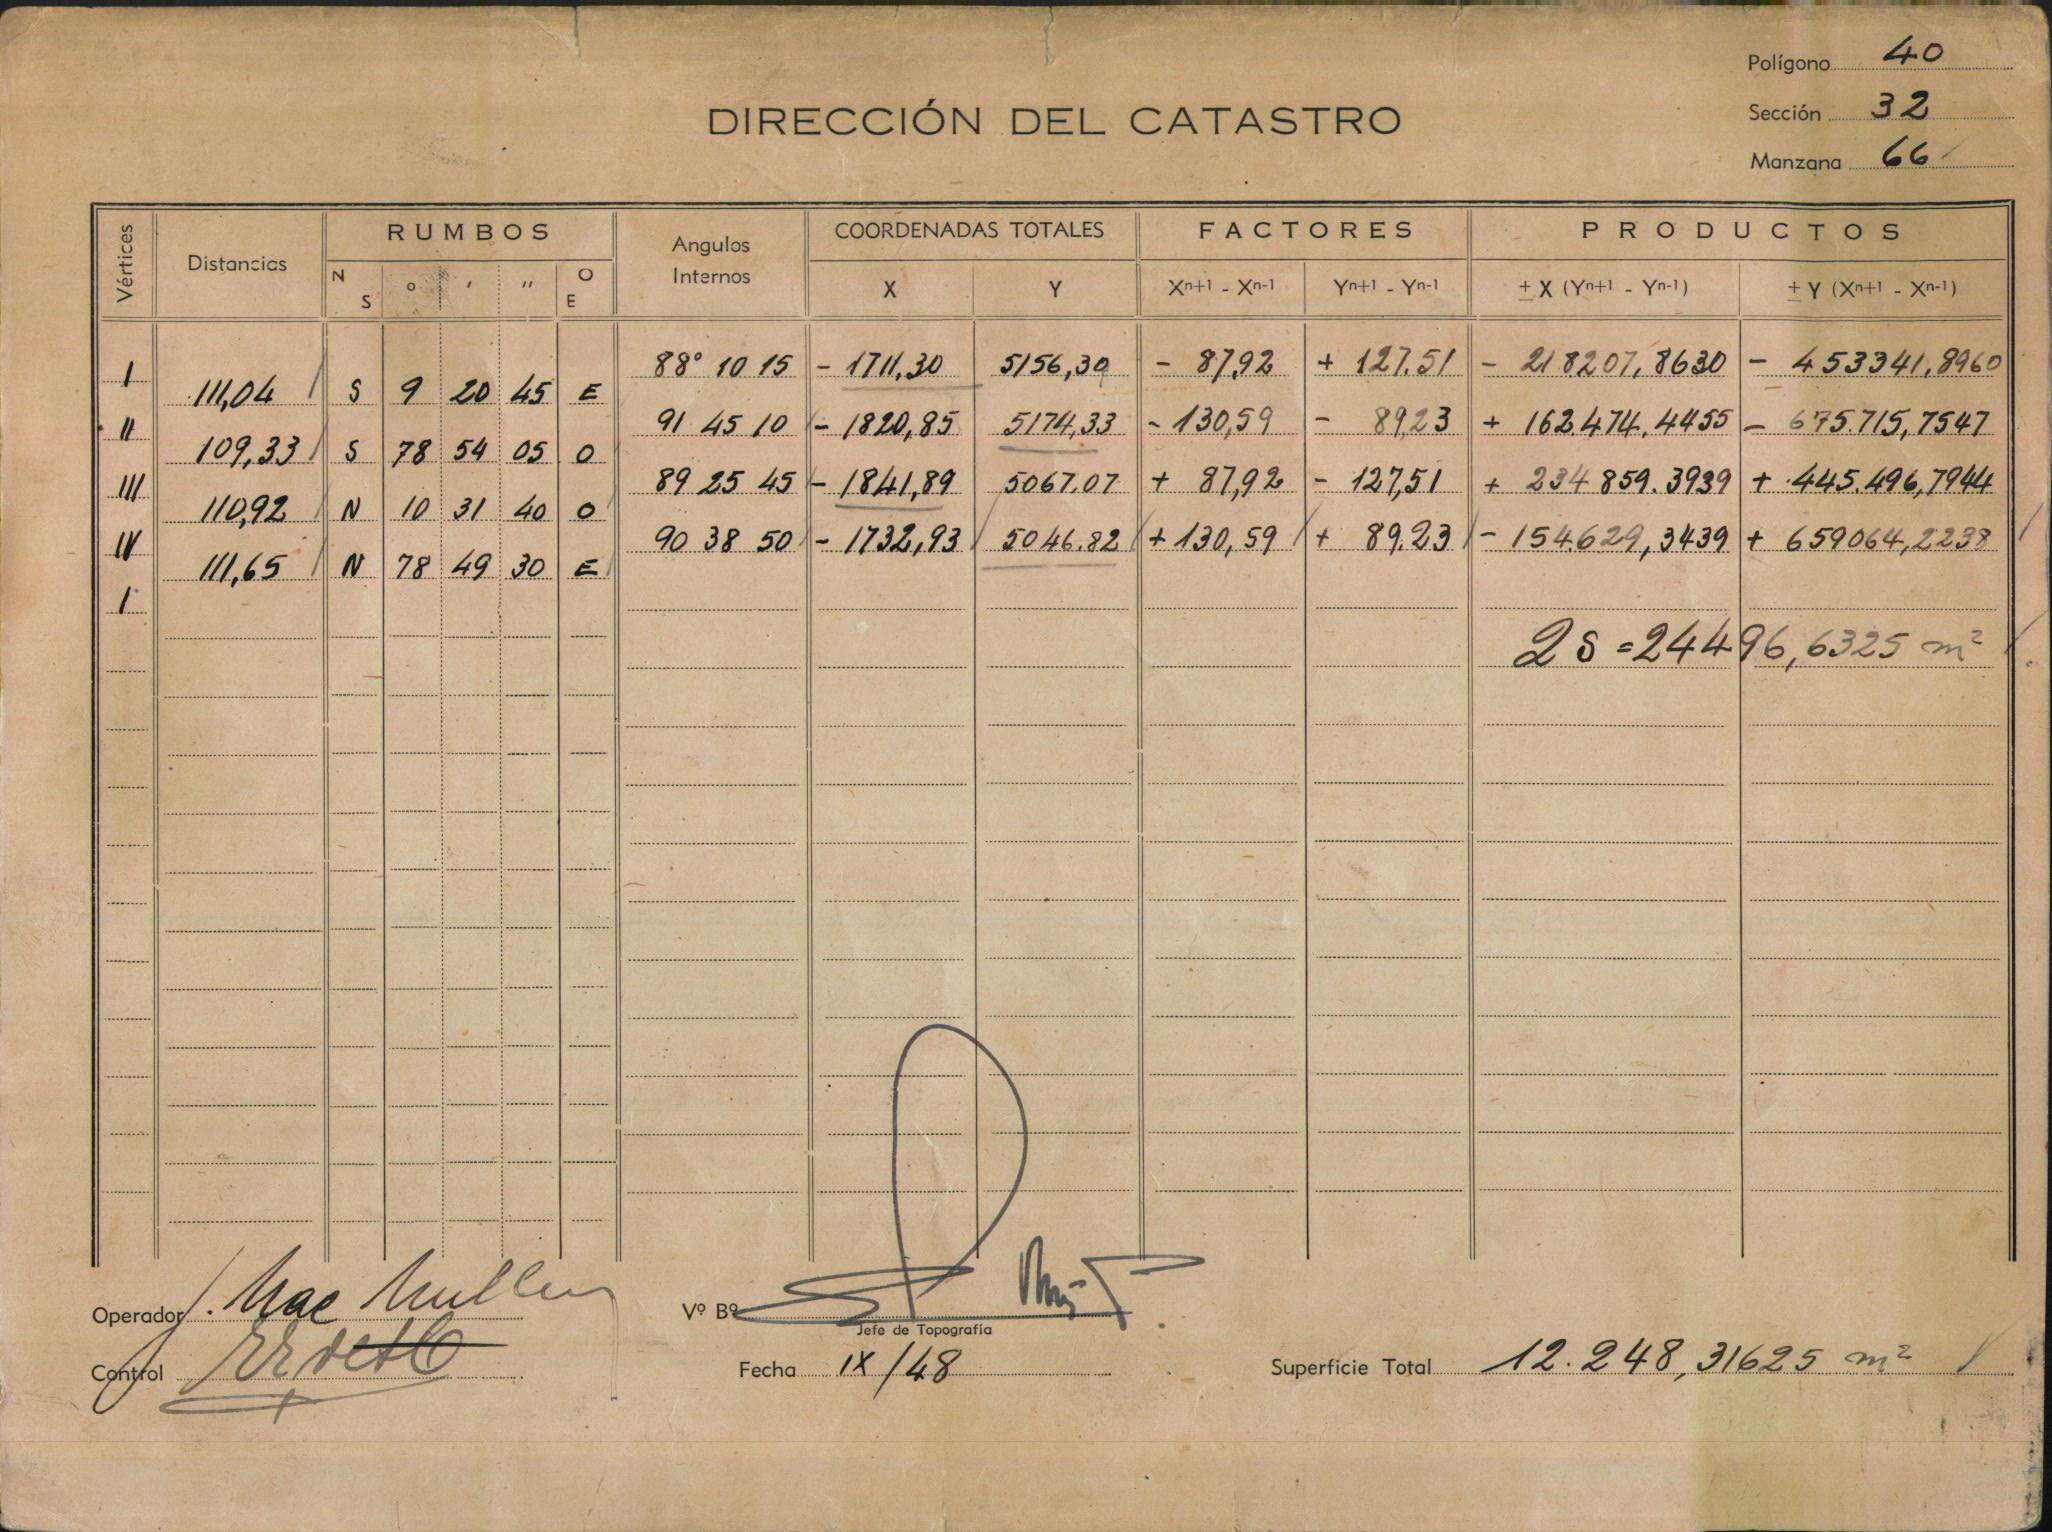 Polígono 40
DIRECCIÓN DEL CATASTRO
Sección 32
Manzana 66
Vértices Distancias RUMBOS Angulos Internos COORDENADAS TOTALES FACTORES PRODUCTOS
N S ° ' " O E X Y Xn+1 - Xn-1 Yn+1 - Yn-1 ± X (Yn+1 - Yn-1) ± Y (Xn+1 - Xn-1)
I 88° 10 15 - 1711,30 5156,30 - 87,92 + 127,51 - 218207,8630 - 453341,8960
111,04 S 9 20 45 E
II 91 45 10 - 1820,85 5174,33 - 130,59 - 89,23 + 162.474,4455 - 675.715,7547
109,33 S 78 54 05 O
III 89 25 45 - 1841,89 5067,07 + 87,92 - 127,51 + 234859.3939 + 445.496,7944
110,92 N 10 31 40 O
IV 90 38 50 - 1732,93 5046.82 + 130,59 + 89.23 - 154.629,3439 + 659064,2238
111,65 N 78 49 30 E
I
2 S = 24496,6325 m²
Operador J. Mac Mullen Vº Bº
Jefe de Topografía
Control Fecha IX/48 Superficie Total 12.248,31625 m²